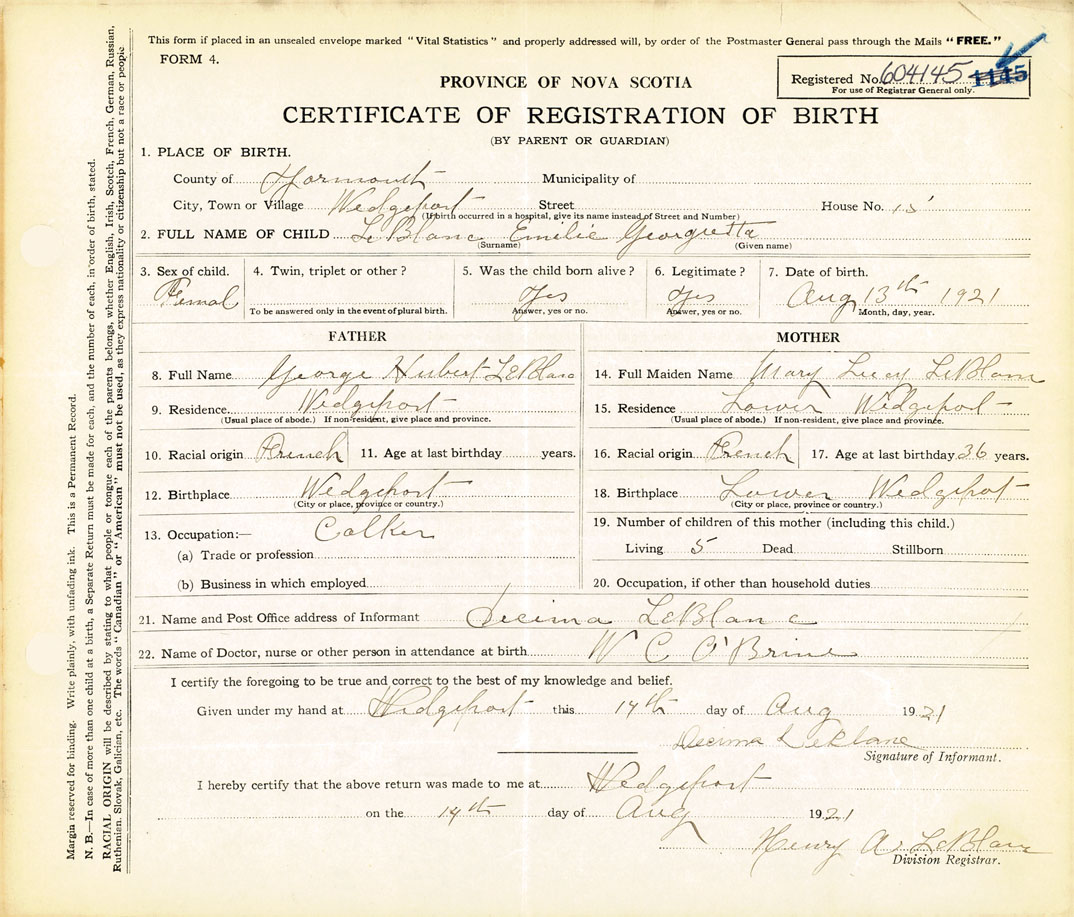 This form if placed in an unsealed envelope marked "Vital Statistics" and properly addressed will, by order of the Postmaster General pass through the Mails "FREE."
FORM 4.
Registered No. 604145 1145
For use of Registrar General only.
PROVINCE OF NOVA SCOTIA
CERTIFICATE OF REGISTRATION OF BIRTH
(BY PARENT OR GUARDIAN)
1. PLACE OF BIRTH.
County of Yarmouth Municipality of
City, Town or Village Wedgeport Street House No. 15
(If birth occurred in a hospital, give its name instead of Street and Number)
2. FULL NAME OF CHILD LeBlanc Emilie Georguetta
(Surname) (Given name)
3. Sex of child. 4. Twin, triplet or other? 5. Was the child born alive? 6. Legitimate? 7. Date of birth.
Femal Yes Yes Aug 13th 1921
To be answered only in the event of plural birth. Answer, yes or no. Answer, yes or no. Month, day, year.
FATHER
8. Full Name George Hubert LeBlanc
9. Residence Wedgeport
(Usual place of abode.) If non-resident, give place and province.
10. Racial origin French 11. Age at last birthday years.
12. Birthplace Wedgeport
(City or place, province or country.)
13. Occupation:— Calker
(a) Trade or profession
(b) Business in which employed
MOTHER
14. Full Maiden Name Mary Lucy LeBlanc
15. Residence Lower Wedgeport
(Usual place of abode.) If non-resident, give place and province.
16. Racial origin French 17. Age at last birthday 36 years.
18. Birthplace Lower Wedgepot
(City or place, province or country.)
19. Number of children of this mother (including this child.)
Living 5 Dead Stillborn
20. Occupation, if other than household duties
21. Name and Post Office address of Informant Decima LeBlanc
22. Name of Doctor, nurse or other person in attendance at birth W C O'Brine
I certify the foregoing to be true and correct to the best of my knowledge and belief.
Given under my hand at Wedgeport this 14th day of Aug 1921
Decima LeBlanc
Signature of Informant.
I hereby certify that the above return was made to me at Wedgeport
on the 14th day of Aug 1921
Henry A. LeBlanc
Division Registrar.
Margin reserved for binding. Write plainly, with unfading ink. This is a Permanent Record.
N. B.—In case of more than one child at a birth, a Separate Return must be made for each, and the number of each, in order of birth, stated.
RACIAL ORIGIN will be described by stating to what people or tongue each of the parents belongs, whether English, Irish, Scotch, French, German, Russian,
Ruthenian, Slovak, Galician, etc. The words "Canadian" or "American" must not be used, as they express nationality or citizenship but not a race or people